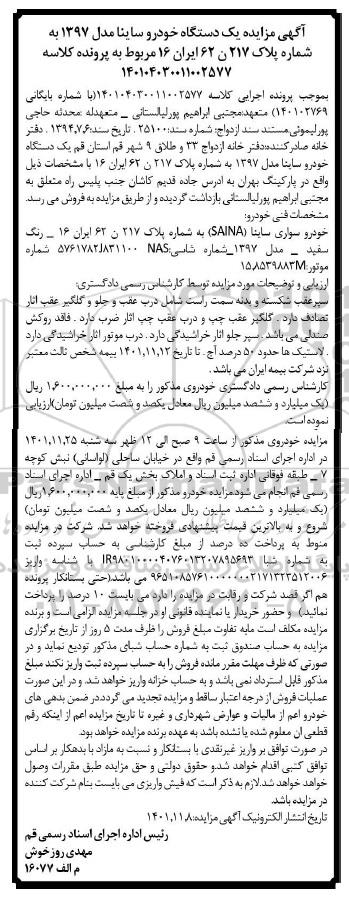 آگهی مزایده یک دستگاه خودرو ساینا مدل ۱۳۹۷ به
شماره پلاک ۲۱۷ ن ۶۲ ایران ۱۶ مربوط به پرونده کلاسه
۱۴۰۱۰۴۰۳۰۰۱۱۰۰۲۵۷۷
بموجب پرونده اجرایی کلاسه ۱۴۰۱۰۴۰۳۰۰۱۱۰۰۲۵۷۷(با شماره بایگانی
۱۴۰۱۰۲۷۶۹) متعهد:مجتبی ابراهیم پورلیالستانی _ متعهدله :محدثه حاجی
پورلیموئی.مستند سند ازدواج: شماره سند:۲۵۱۰۰. تاریخ سند:۱۳۹۴،۷،۶ . دفتر
خانه صادرکننده:دفتر خانه ازدواج ۳۳ و طلاق ۹ شهر قم استان قم یک دستگاه
خودرو ساینا مدل ۱۳۹۷ به شماره پلاک ۲۱۷ ن ۶۲ ایران ۱۶ با مشخصات ذیل
واقع در پارکینگ بهران به ادرس جاده قدیم کاشان جنب پلیس راه متعلق به
مجتبی ابراهیم پورلیالستانی بازداشت گردیده و از طریق مزایده به فروش می رسد.
مشخصات فنی خودرو:
خودرو سواری ساینا (SAINA) به شماره پلاک ۲۱۷ ن ۶۲ ایران ۱۶ _ رنگ
سفید _ مدل ۱۳۹۷_شماره شاسی:NAS ۸۳۱۱۰۰J۵۷۶۱۷۸۲ شماره
موتور:M۱۵،۸۵۳۹۸۸۳
ارزیابی و توضیحات مورد مزایده توسط کارشناس رسمی دادگستری:
سپرعقب شکسته و بدنه سمت راست شامل درب عقب و جلو و گلگیر عقب اثار
تصادف دارد . گلگیر عقب چپ و درب عقب چپ اثار ضرب دارد . فاقد روکش
صندلی می باشد . سپر جلو اثار خراشیدگی دارد . درب موتور اثار خراشیدگی دارد
. لاستیک ها حدود ۵۰ درصد آج . تا تاریخ ۱۴۰۱،۱۱،۲۲ بیمه شخص ثالث معتبر
نزد شرکت بیمه ایران می باشد .
کارشناس رسمی دادگستری خودروی مذکور را به مبلغ ۱،۶۰۰،۰۰۰،۰۰۰ ریال
(یک میلیارد و ششصد میلیون ریال معادل یکصد و شصت میلیون تومان)ارزیابی
نموده است.
مزایده خودروی مذکور از ساعت ۹ صبح الی ۱۲ ظهر سه شنبه ۱۴۰۱،۱۱،۲۵
در اداره اجرای اسناد رسمی قم واقع در خیابان ساحلی (لواسانی) نبش کوچه
۷ _ طبقه فوقانی اداره ثبت اسناد و املاک بخش یک قم _ اداره اجرای اسناد
رسمی قم انجام می شود.مزایده خودرو مذکور از مبلغ پایه ۱،۶۰۰،۰۰۰،۰۰۰ریال
(یک میلیارد و ششصد میلیون ریال معادل یکصد و شصت میلیون تومان)
شروع و به بالاترین قیمت پیشنهادی فروخته خواهد شد. شرکت در مزایده
منوط به پرداخت ده درصد از مبلغ کارشناسی به حساب سپرده ثبت
به شماره شبا IR۹۸۰۱۰۰۰۰۴۰۷۶۰۱۳۲۰۷۸۹۵۶۹۳ با شناسه واریز
۹۶۵۱۰۸۵۷۶۱۰۰۰۰۰۰۰۲۱۷۱۳۲۳۵۱۲۰۰۶ می باشد.(حتی بستانکار پرونده
هم اگر قصد شرکت و رقابت در مزایده را دارد می بایست ۱۰ درصد را پرداخت
نمائید) و حضور خریدار یا نماینده قانونی او در جلسه مزایده الزامی است و برنده
مزایده مکلف است مابه تفاوت مبلغ فروش را ظرف مدت ۵ روز از تاریخ برگزاری
مزایده به حساب صندوق ثبت به شماره حساب شبای مذکور تودیع نماید و در
صورتی که ظرف مهلت مقرر مانده فروش را به حساب سپرده ثبت واریز نکند مبلغ
مذکور قابل استرداد نمی باشد و به حساب خزانه واریز خواهد شد. و در این صورت
عملیات فروش از درجه اعتبار ساقط و مزایده تجدید می گردد.در ضمن بدهی های
خودرو اعم از مالیات و عوارض شهرداری و غیره تا تاریخ مزایده اعم از اینکه رقم
قطعی ان معلوم شده یا نشده باشد به عهده برنده مزایده خواهد بود.
در صورت توافق بر واریز غیرنقدی با بستانکار و نسبت به مازاد با بدهکار بر اساس
توافق کتبی اقدام خواهد شد.و حقوق دولتی و حق مزایده طبق مقررات وصول
خواهد شد.لازم به ذکر است که فیش واریزی می بایست بنام شرکت کننده
در مزایده باشد.
تاریخ انتشار الکترونیک آگهی مزایده:۱۴۰۱،۱۱،۸
رئیس اداره اجرای اسناد رسمی قم
مهدی روزخوش
م الف ۱۶۰۷۷